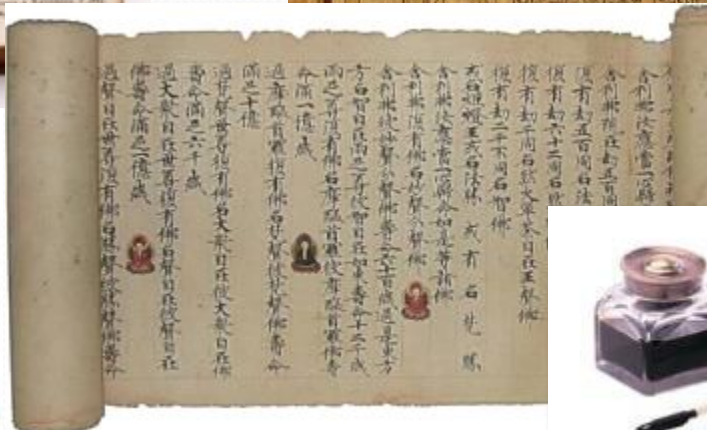 舍利弗應當一心歸
舍利弗現在劫五百同
復有劫五百同名法
復有劫六十二同名
復有劫千同名 大軍 自在王聲佛
復有劫二千不同名智佛
或名燈王或名法勝 或有名梵勝
舍利弗應當一心歸命如是等諸佛
舍利弗復有佛名妙聲分聲佛
舍利弗彼妙聲分聲佛壽六十百歲過是東方
方名智自在兩足尊彼智自在如來壽命十二千歲
兩足尊復有佛名摩醯首羅彼摩醯首羅佛壽
命滿一億歲
過摩醯首羅復有佛名梵聲彼梵聲佛壽命
滿足十億
過梵聲世尊復有佛名大眾自在彼大眾自在佛
壽命滿足六千歲
過大眾自在世尊復有佛名聲自在彼聲自在
佛壽命滿足一億歲
過聲自在世尊復有佛名勝聲彼勝聲佛壽命